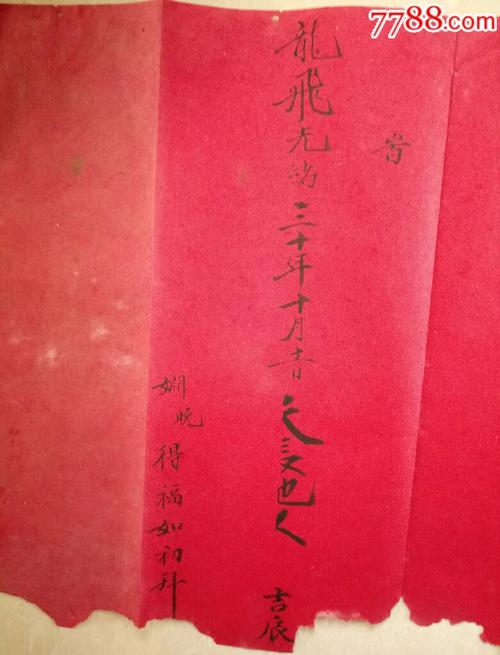 7788.com
音
龍飛光緒三十年十月十一日 天定也人 吉辰
姻晚 得福如初拜